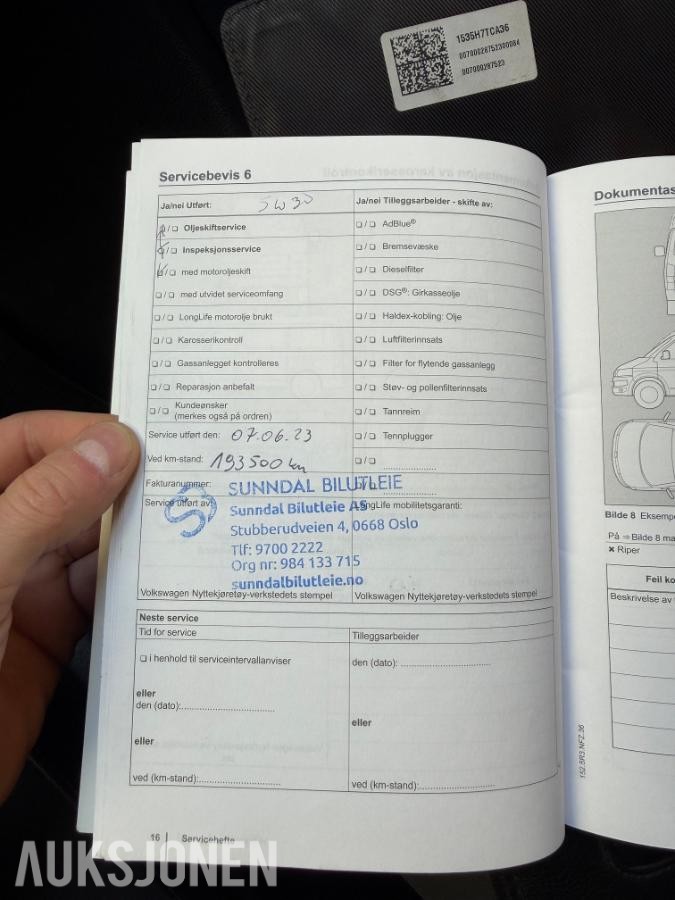 1535H7TCA36
0070002875230D084
007000287523
Servicebevis 6
Ja/nei Utført: 5W30
Ja/nei Tilleggsarbeider - skifte av:
❏/❏ Oljeskiftservice
❏/❏ AdBlue®
❏/❏ Inspeksjonsservice
❏/❏ Bremsevæske
❏/❏ med motoroljeskift
❏/❏ Dieselfilter
❏/❏ med utvidet serviceomfang
❏/❏ DSG®: Girkasseolje
❏/❏ LongLife motorolje brukt
❏/❏ Haldex-kobling: Olje
❏/❏ Karosserikontroll
❏/❏ Luftfilterinnsats
❏/❏ Gassanlegget kontrolleres
❏/❏ Filter for flytende gassanlegg
❏/❏ Reparasjon anbefalt
❏/❏ Støv- og pollenfilterinnsats
❏/❏ Kundeønsker
(merkes også på ordren)
❏/❏ Tannreim
Service utført den: 07.06.23
❏/❏ Tennplugger
Ved km-stand: 193500 km
❏/❏ ....................
Fakturanummer:
❏/❏ ....................
Service utført av:
LongLife mobilitetsgaranti:
SUNNDAL BILUTLEIE
Sunndal Bilutleie AS
Stubberudveien 4, 0668 Oslo
Tlf: 9700 2222
Org nr: 984 133 715
sunndalbilutleie.no
Volkswagen Nyttekjøretøy-verkstedets stempel
Volkswagen Nyttekjøretøy-verkstedets stempel
Neste service
Tid for service
Tilleggsarbeider
❏ i henhold til serviceintervallanviser
den (dato): ..............................
eller
den (dato):..............................
eller
eller
ved (km-stand):..........................
ved (km-stand):..........................
16 | Servicehefte
Dokumentas
Bilde 8 Eksempe
På ⇒ Bilde 8 ma
✖ Riper
Feil ko
Beskrivelse av
152.5R3.NFZ.36
AUKSJONEN